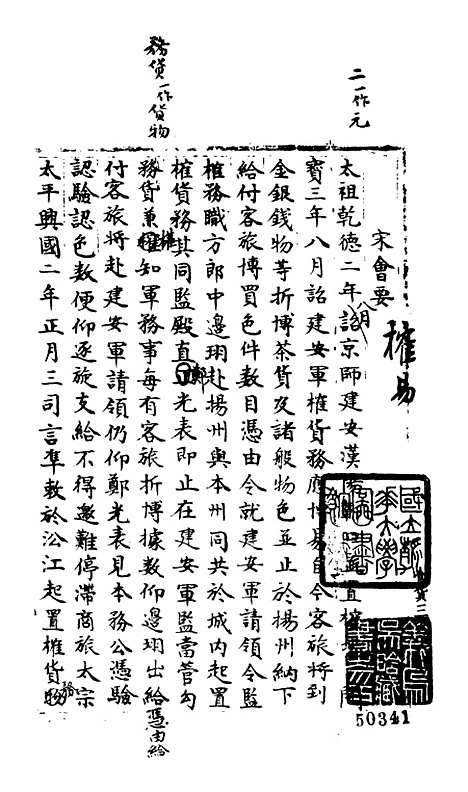 二一作元
務貨一作貨物
宋會要
榷易
太祖乾德二年八月詔京師建安漢
寳三年八月詔建安軍榷貨務應博易自今客旅將到
金銀錢物等折博茶貨及諸般物色並止於揚州納下
給付客旅博買色件數目憑由令就建安軍請領令監
榷務職方郎中邊珝赴揚州與本州同共於城内起置
榷貨務其同監殿直鄭光表即止在建安軍監當管勾
務貨兼權知軍務事每有客旅折博據數仰邊珝出給憑由給
付客旅將赴建安軍請領仍仰鄭光表見本務公憑驗
認驗認色數便仰逐旋支給不得邀難停滯商旅太宗
太平興國二年正月三司言準敕於沿江起置榷貨務
50341